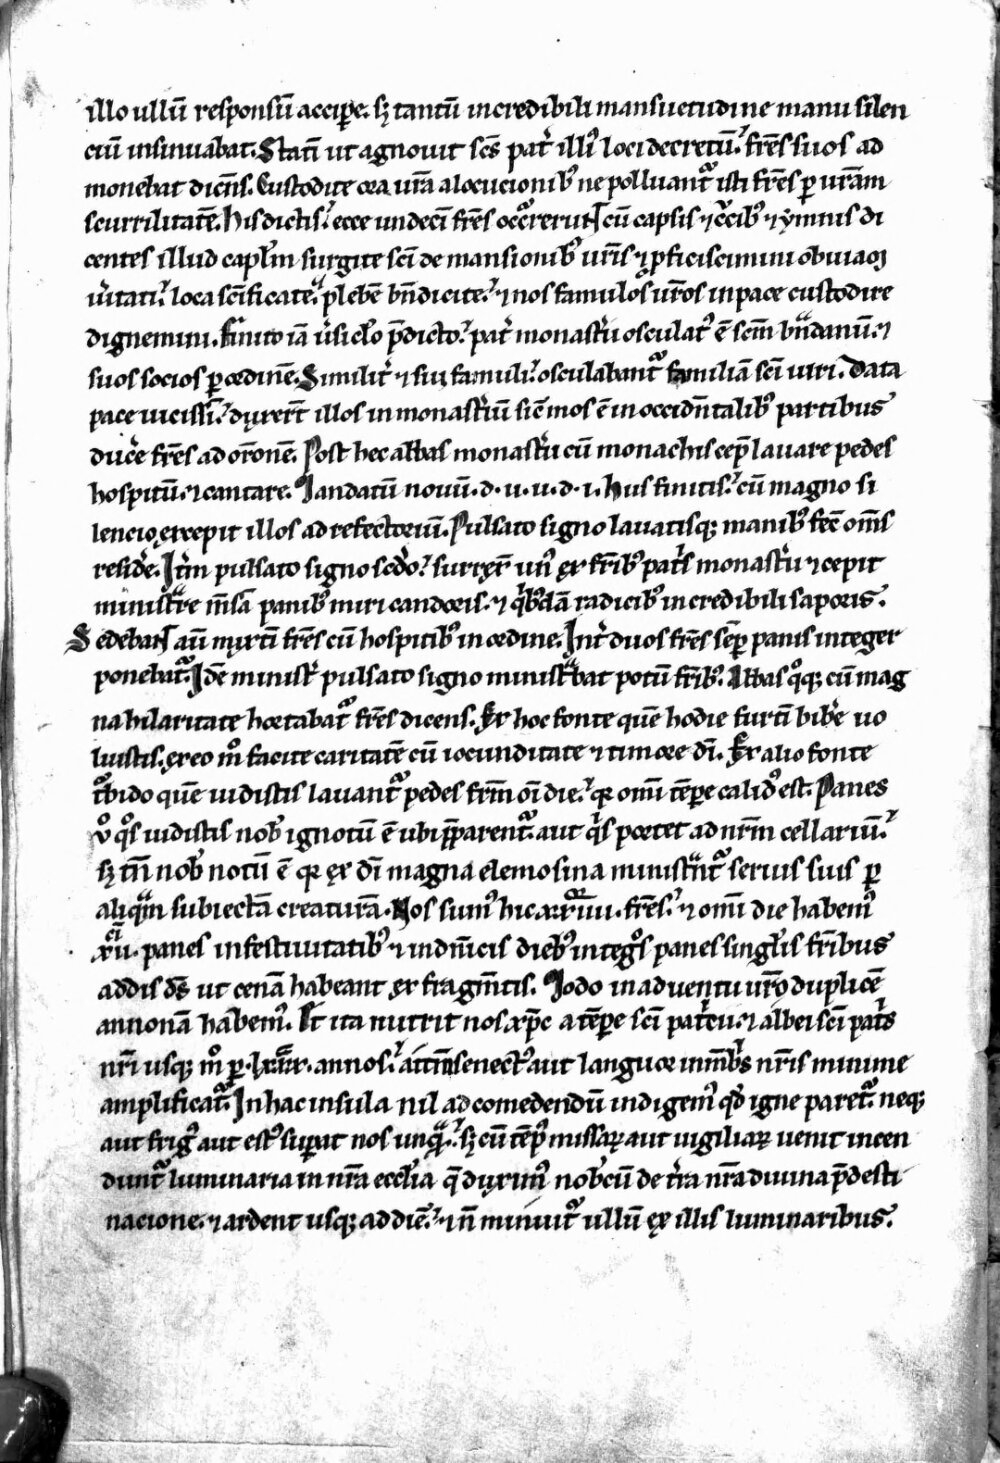 illo ullū responsū accipe. sꝫ tantū incredibili mansuetudine manu silen
ciū insinuabat. Statī ut agnovit scs̄ pat̓ illi᷒ loci decretū. fr̄es suos ad
monebat dicēs. Custodite ora vr̄a a locucionib᷒ ne polluant᷑ isti fr̄es ꝑ vr̄am
scurrilitatē. His dictis. ecce undeci fr̄es occ̓rerūt cū capsis ⁊ c̓cib᷒ ⁊ ymnis di
centes illud capl̄m surgite sc̄i de mansionib᷒ vr̄is ⁊ ꝓficiscimini obviam
v̓itati. loca sc̄ificate. plebē bn̄dicite. ⁊ nos famulos vr̄os in pace custodire
dignemini. Finito iā v̓siclo p̄dicto. pat̓ monast̓ii osculat᷒ ē sc̄m bn̄danū. ⁊
suos socios ꝑ ordinē. Similit̓ ⁊ sui famuli. osculabant᷑ familiā sc̄i viri. Data
pace vicissī. duxer̄t illos in monast̓iū sic̄ mos ē in occidn̄talib᷒ partibus
duc̓e fr̄es ad or̄onē. Post hec abbas monast̓ii cū monachis cep̄ lavare pedes
hospitū. ⁊ cantare. Mandatū novū. d. v. v. d. i. Hiis finitis. cū magno si
lencio excepit illos ad refectoriū. Pulsato signo lavatisqꝫ manib᷒ fec̄ om̄s
resid̓e. It̓m pulsato signo sc̄do. surrex̄ un᷒ ex fr̄ib᷒ pat̓s monast̓ii ⁊ cepit
minist̓re m̄sā panib᷒ miri candoris. ⁊ q̓b᷒dā radicib᷒ incredibili saporis.
Sedebāt aū mixti fr̄es cū hospitib᷒ in ordine. Int̓ duos fr̄es semꝑ panis integer
ponebat᷑. Idē minist̓ pulsato signo minist̓bat potū fr̄ib᷒. Abbas q°qꝫ cū mag
na hilaritate hortabat᷑ fr̄es dicens. Ex hoc fonte quē hodie furtī bib̓e vo
luistis. ex eo m° facite caritatē cū iocunditate ⁊ timore dī. Ex alio fonte
t᷑bido quē vidistis lavant᷑ pedes fr̄m oī die. qꝛ omī tēpe calid᷒ est. Panes
v° q°s vidistis nob̓ ignotū ē ubi p̄parent᷑. aut q̓s portet ad nr̄m cellariū.
sꝫ tn̄ nob̓ notū ē qꝛ ex dī magna elemosina ministrāt᷑ servis suis ꝑ
aliq̓m subiectā creaturā. Nos sum᷒ hic xxiiii. fr̄es. ⁊ omī die habem᷒
xii. panes in festivitatib᷒ ⁊ in dn̄icis dieb᷒ integ°s panes singl̓is fr̄ibus
addis ds̄ ut cenā habeant ex fragm̄tis. Modo in adventu vr̄o duplicē
annonā habem᷒. Et ita nutrit nos xp̄c a tēpe sc̄i patricii. ⁊ albei sc̄i pat̓s
nr̄i usqꝫ m° ꝑ. lxxx. annos. attn̄ senect᷒ aut languor in mēb̓s nr̄is minime
amplificat᷑. In hac insula nil ad comedendū indigem᷒ qd̓ igne paret᷑. neqꝫ
aut frig᷒ aut est᷒ suꝑat nos unq̓. sꝫ cū tēp᷒ missaꝝ aut vigiliaꝝ venit incen
dunt᷑ luminaria in nr̄a eccl̄ia q̄ duxim᷒ nob̓cū de t̓ra nr̄a divina p̄desti
nacione. ⁊ ardent usqꝫ ad diē. ⁊ n̄ minuit᷑ ullū ex illis luminaribus.